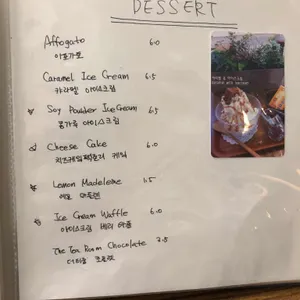 DESSERT
Affogato 6.0
아포가토
Caramel Ice Cream 6.5
카라멜 아이스크림
Soy Powder Ice Cream 6.5
콩가루 아이스크림
Cheese Cake 6.0
치즈케잌
Lemon Madeleine 1.5
레몬 마들렌
Ice Cream Waffle 6.0
아이스크림 와플
The Tea Room Chocolate 7.5
더티룸 초콜렛